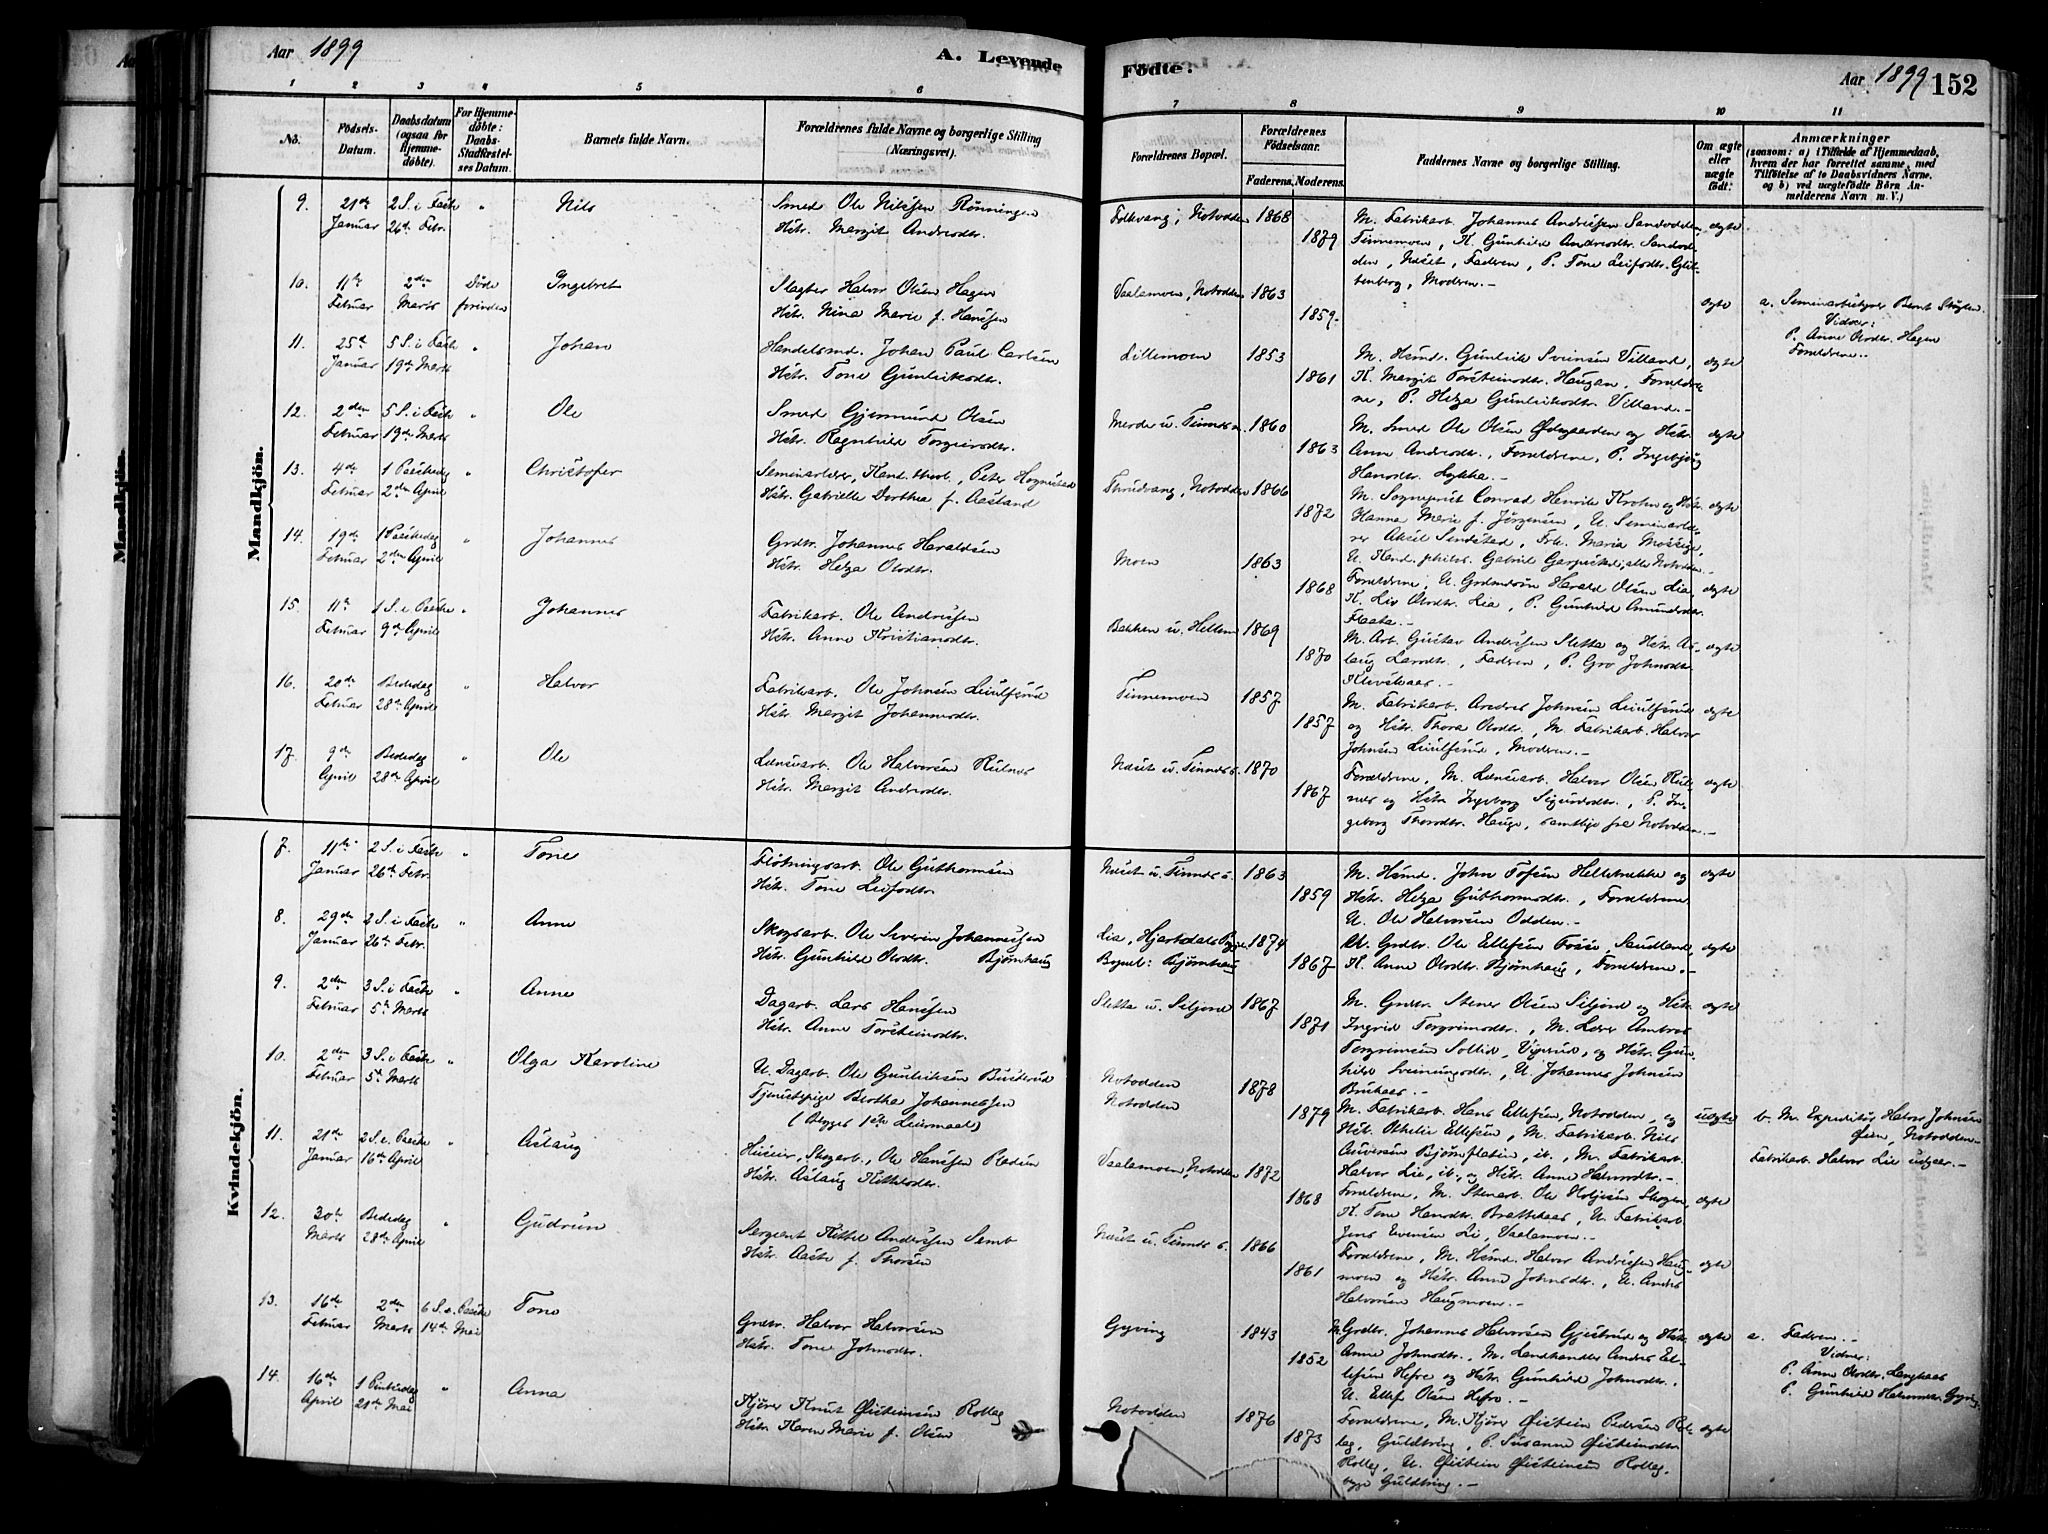 Aar 1899
A. Levende
Födte.
Aar 1899
152
1 2 3 4 5 6 7 8 9 10 11
No.
Födsels-Datum.
Daabsdatum (ogsaa for Hjemme-døbte).
For Hjemme-døbte: Daabs-Stadfæstel-ses Datum.
Barnets fulde Navn.
Forældrenes fulde Navne og borgerlige Stilling (Næringsvei).
Forældrenes Bopæl.
Forældrenes Födselsaar.
Faderens. Moderens.
Faddernes Navne og borgerlige Stilling.
Om ægte eller uægte født.
Anmærkninger
(saasom: a) i Tilfælde af Hjemmedaab, hvem der har forrettet samme, med Tilføielse af to Daabsvidners Navne, og b) ved uægtefødte Börn Anmelderens Navn m. V.)
Mandkjön.
9. 21de Januar 2 S. i Faste 26de Febr. " Nils
Smed Ole Nilssen Rönningen
Hstr. Margit Andresdtr.
Folkvang, Notodden 1868 1879
M. Fabrikarb. Johannes Andressen Sandodden
Tinnemoen, K. Gunhild Andresdtr. Sandod-
den, Næset, Faderen, P. Tone Leifsdtr. 
Moderen.-
ægte
10. 11te Februar 2den Marts Døde forinden Ingebret
Slagter Halvor Olsen Hagen
Hstr. Nina Marie f. Hansen
Vaalamoen, Notodden 1863 1859.
ægte
a. Seminarbestyrer Bernt Stöylen
Vidner:
P. Anne Olsdtr. Hagen
Forældrene.
11. 25de Januar 5 S. i Faste 19de Marts " Johan
Handelsmd. Johan Paul Carlsen
Hstr. Tone Gunleiksdtr.
Lillemoen 1853 1861
M. Hsmd. Gunleik Svensen Villand,
K. Margit Torsteinsdtr. Haugan, Forældre-
ne, P. Helga Gunleiksdtr. Villand.-
ægte
12. 2den Februar 5 S. i Faste 19de Marts " Ole
Smed Gjermund Olsen
Hstr. Ragnhild Torgeirsdtr.
1860 1863
M. Smed Ole Olsen Ødegaarden og Hstr.
Anne Andresdtr., Forældrene, P. Ingebjørg
Hansdtr. Lykka.-
ægte
13. 4de Februar 1 Paaskedag 2den April " Christofer
Seminarlærer, Kand. theol. Peter Hognestad
Hstr. Gabrielle Dorthea f. Aasland
Thrudvang, Notodden 1866 1872
M. Sogneprest Conrad Henrik Krohn og Hstr.
Hanna Marie f. Jørgensen, U. Seminarlæ-
rer Aksel Sendstad, Frk. Maria
U. Kand. philos. Gabriel alle Notodden.-
ægte
14. 19de Februar 1 Paaskedag 2den April " Johannes
Grdbr. Johannes Haraldsen
Hstr. Helga Olsdtr.
Moen 1863 1868
Forældrene, U. Grdmdsön Harald Olsen Lia
K. Liv Olsdtr. Lia, P. Gunhild Amundsdtr.
Flaata.-
ægte
15. 11te Februar 1 S. e. Paaske 9de April " Johannes
Fabrikarb. Ole Andressen
Hstr. Anne Kristiansdtr.
Bakken u. 1869 1870
M. Arb. Gustav Andersen Sletta og Hstr. As-
laug Larsdtr., Faderen, P. Gro Johnsdtr.
ægte
16. 20de Februar Bededag 28de April " Halvor
Fabrikarb. Ole Johnsen Liiulfsrud
Hstr. Margit Johannesdtr.
Tinnemoen 1857 1857
M. Fabrikarb. Andres Johnsen Liiulfsrud
og Hstr. Thora Olsdtr., M. Fabrikarb. Halvor
Johnsen Liiulfsrud, Moderen.-
ægte
17. 9de April Bededag 28de April " Ole
Lænsearb. Ole Halvorsen Rulnes
Hstr. Margit Andresdtr.
Næset u. Tinnes 1870 1867
Forældrene, M. Lænsearb. Halvor Olsen Rul-
nes og Hstr. Ingeborg Sigurdsdtr., P. In-
geborg Thorsdtr. Hauge, samtlige fra Notodden.-
ægte
Kvindekjön.
7. 11te Januar 2 S. i Faste 26de Febr. " Tone
Flötningsarb. Ole Guthormsen
Hstr. Tone Leifsdtr.
Næset u. Tinnes 1863 1859
M. Hsmd. John Tofsen Hellebrekke og
Hstr. Helga Guthormsdtr., Forældrene
U. Ole Halvorsen Odden.-
ægte
8. 29de Januar 2 S. i Faste 26de Febr. " Anne
Skogsarb. Ole Severin Johannessen
Hstr. Gunhild Olsdtr. Bjørnhaug
Lia, Hjartdals Pgj. 1874 1867
Bopæl: Bjørnhaug
U. Grdbr. Ole Ellefsen Fossi, Sauland,
K. Anne Olsdtr. Bjørnhaug, Forældrene.-
ægte
9. 2den Februar 3 S. i Faste 5te Marts " Anne
Dagarb. Lars Hansen
Hstr. Anne Torsteinsdtr.
Sletta u. Seljord 1867 1871
M. Grdbr. Stener Olsen Seljord og Hstr.
Ingrid Torgrimsdtr., M. Lærer Ambros
Torgrimsen Sollid, og Hstr. Gun-
hild Sveinungsdtr., U. Johannes Johnsen
ægte
10. 2den Februar 3 S. i Faste 5te Marts " Olga Karoline
U. Dagarb. Ole Gunleiksen Buskerud
Tjenestepige Berthe Johannessen
(Begges 1ste Leiermaal)
Notodden
Notodden 1878 1879
M. Fabrikarb. Hans Ellefsen, Notodden, og
Hstr. Othelie Ellefsen, M. Fabrikarb. Nils
Bjørnflaten, ib., M. Fabrikarb.
Halvor Lie, ib., og Hstr. Anne Halvorsdtr.-
uægte
b. M. Expeditör Halvor Johnsen
Øien, Notodden-
Fabrikarb. Halvor Lie udgaar.-
11. 21de Januar 2 S. e. Paaske 16de April " Aslaug
Huseier, Skogarb., Ole Hansen
Hstr. Aslaug Kittilsdtr.
Vaalamoen, Notodden 1872 1868
Forældrene, M. Stenarb. Ole Holjesen Skogen,
K. Tone Hansdtr. Brattehaas, U. Fabrikarb.
Jens Evensen Li, Vaalamoen.-
ægte
12. 30te Marts Bededag 28de April " Gudrun
Sergeant Kittel Anderssen Semb
Hstr. Aaste f. Thorsen
Næset u. Tinnes 1866 1861
Forældrene, M. Hsmd. Halvor Andresen Haug-
moen og Hstr. Anne Johnsdtr., U. Andres
Halvorsen Haugmoen.-
ægte
13. 16de Februar 2den Marts 6 S. e. Paaske 14de Mai Tone
Grdbr. Halvor Halvorsen
Hstr. Tone Johnsdtr.
Gyving 1843 1852
M. Grdbr. Johannes Halvorsen Gjestrud og Hstr.
Anne Johnsdtr., M. Landhandler Andres El-
lefsen Hefre og Hstr. Gunhild Johnsdtr.,
U. Ellef Olsen Hefro.-
ægte
a. Faderen.-
Vidner:
P. Anne Olsdtr.
P. Gunhild Gyving.
14. 16de April 1 Pintsedag 21de Mai " Anna
Kjører Knut Øisteinsen Rollag
Hstr. Karen Marie f. Olsen
Notodden 1876 1873
Forældrene, M. Kjører Øistein Pedersen Rol-
lag, Guldbring, P. Susanne Øisteinsdtr.
Rollag, U. Øistein Øisteinsen Rollag,
begge Guldbring.-
ægte